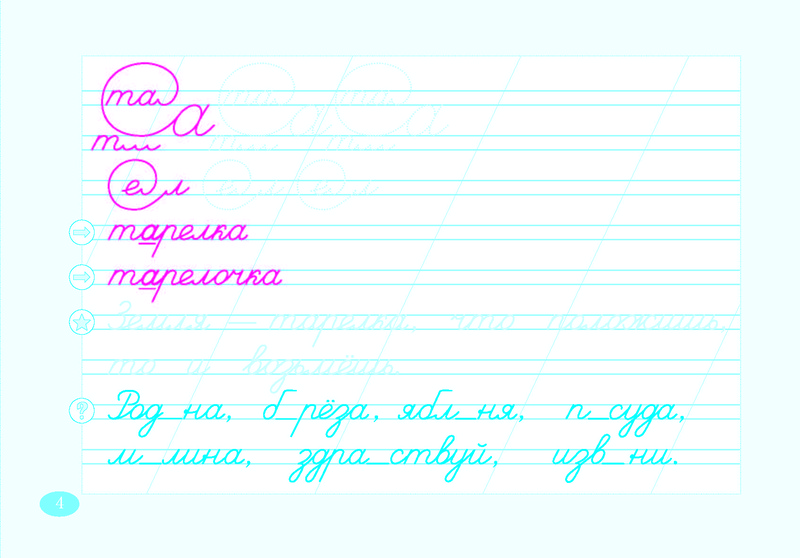 та
а
т
е л
тарелка
тарелочка
Земля — тарелка: что положишь,
то и возьмёшь.
Род_на, б_рёза, ябл_ня, п_суда,
м_лина, здра_ствуй, изв_ни.
4